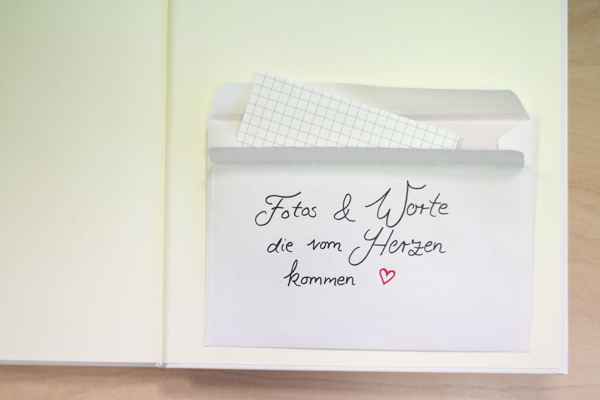 Fotos & Worte
die vom Herzen
kommen ♡